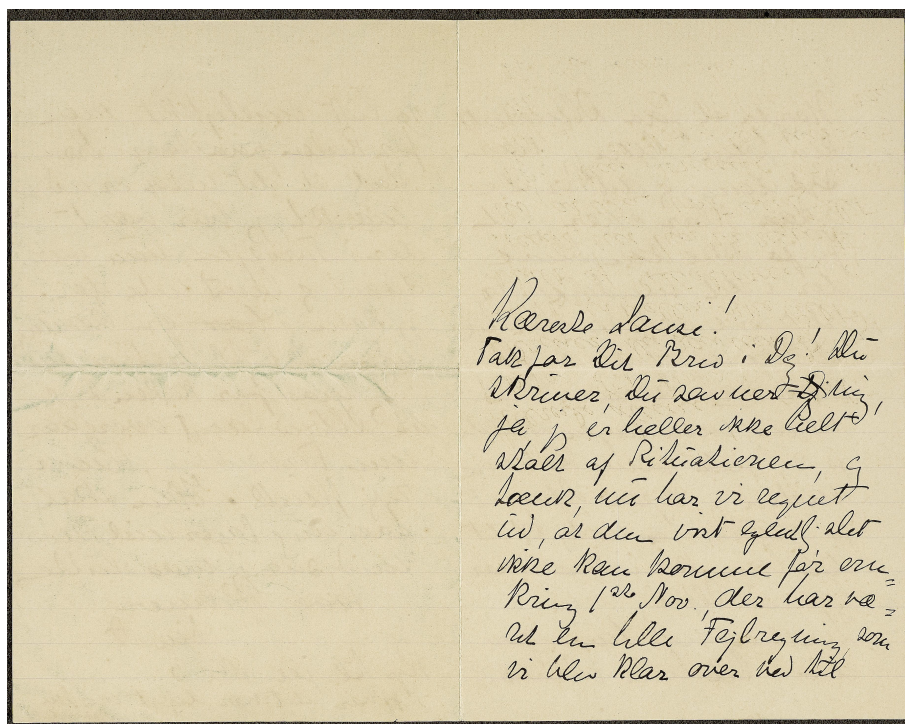 Kæreste Sanse!
Tak for Dit Brev i Dag! Du
skriver, Du savner mig,
ja, jeg er heller ikke helt
stolt af Situationen, og
tænk, nu har vi regnet
ud, at den vist egentlig slet
ikke kan komme før om=
kring 1ste Nov., der har væ=
ret en lille Fejlregning, som
vi blev klar over ved til